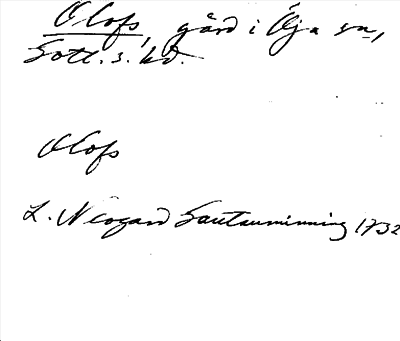 Olofs, gård i Öja sn,
Gotl. s. hd.
Olofs
L. Neogard Gautauminning 1732